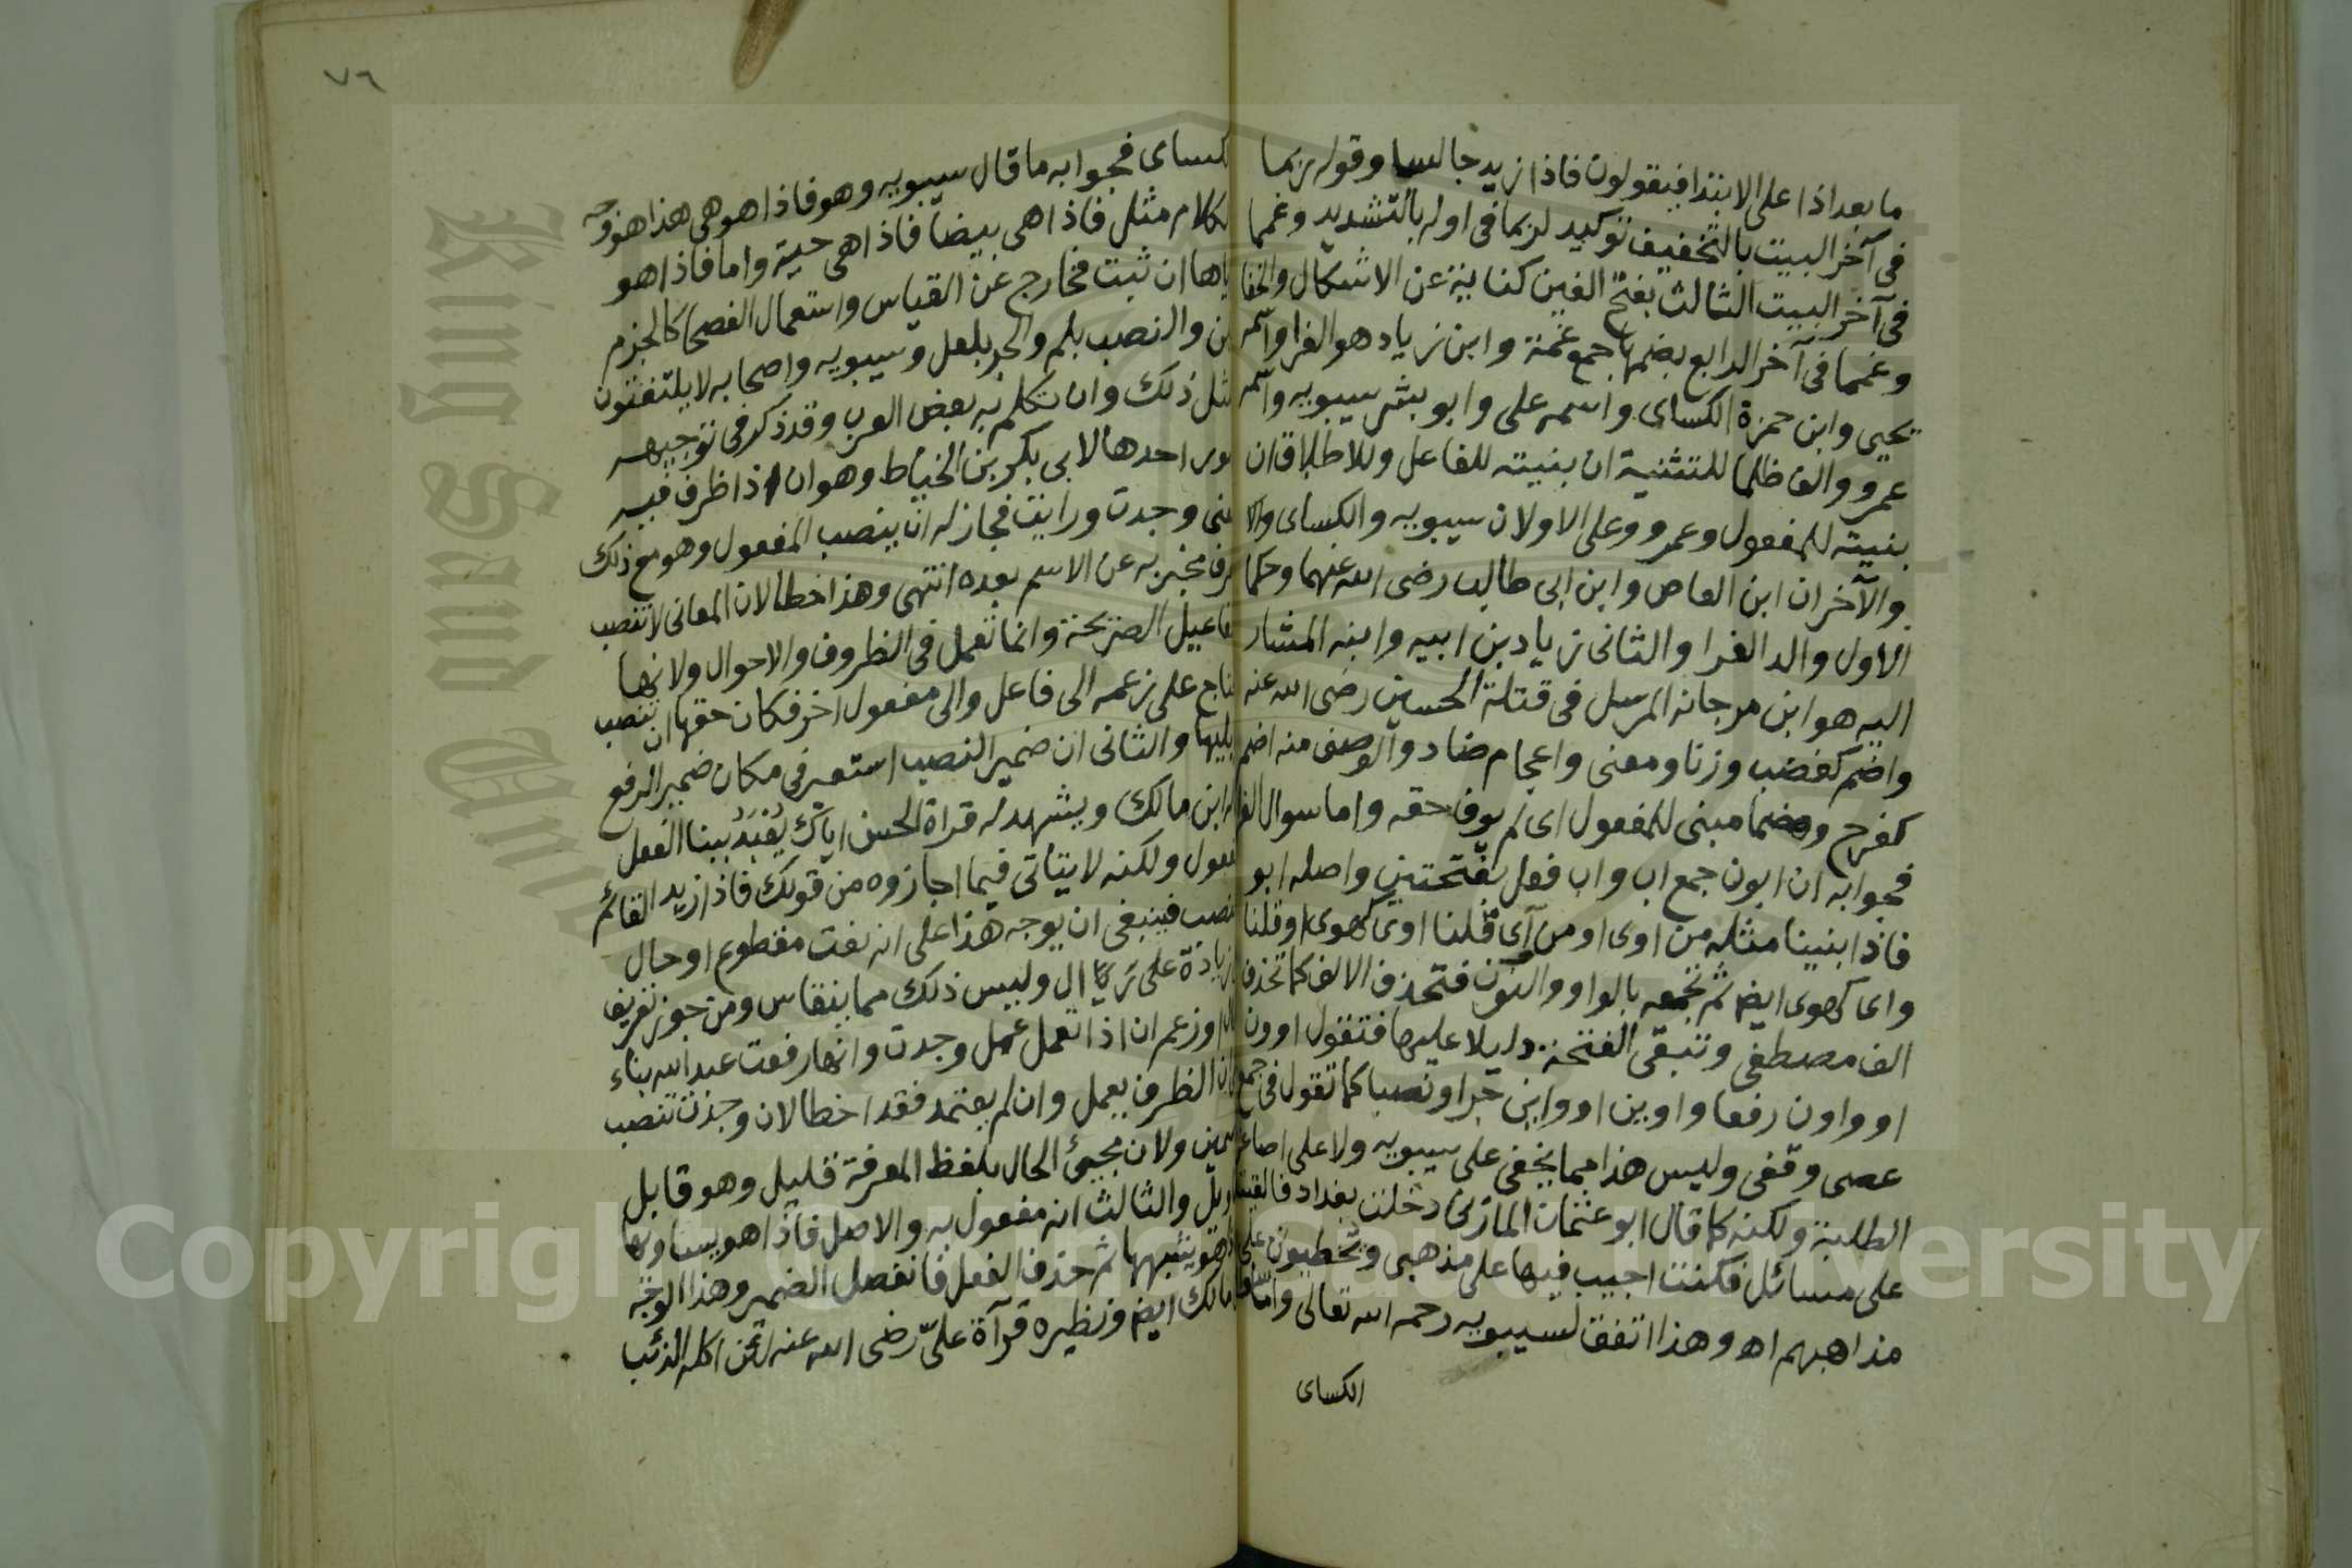 ما بعد اذا على الابتدا فيقولون فاذا زيد جالسا وقوله ربما
فى آخر البيت بالتخفيف توكيد لربما فى اوله بالتشديد وغمما
فى آخر البيت الثالث بفتح الغين كناية عن الاشكال والخفا
وغمما فى آخر الرابع بضمها جمع غمة وابن زياد هو الفرا واسمه
يحيى وابن حمزة الكساى واسمه على وابو بشر سيبويه واسمه
عمرو والف ظلما للتثنية ان بنيته للفاعل وللاطلاق ان
بنيته للمفعول وعمرو وعلى الاولان سيبويه والكساى والا
والآخران ابن العاص وابن ابى طالب رضى الله عنهما وحكما
الاول والد الفرا والثانى زياد بن ابيه وابنه المشار
اليه هو ابن مرجانه المرسل فى قتلة الحسين رضى الله عنه
واضم كغضب وزنا ومعنى واعجام ضاد والوصف منه اضم
كفرح وهضما مبنى للمفعول اى لم يوف حقه واما سوال الفرا
فجوابه ان ابون جمع اب واب فعل بفتحتين واصله ابو
فاذا بنينا مثله من اوى او من آى قلنا اوى كهوى او قلنا
واى كهوى ايضا ثم تجمعه بالواو والنون فتحذف الالف كما تحذف
الف مصطفى وتبقى الفتحة دليلا عليها فتقول اوون
او واون رفعا واوين او واين جرا ونصبا كما تقول فى جمع
عصى وقفى وليس هذا مما يخفى على سيبويه ولا على اصاغر
الطلبة ولكنه كما قال ابو عثمان المازنى دخلت بغداد فالقيت
على مسائل فكنت اجيب فيها على مذهبى ويخطبون على
مذاهبهم اه وهذا اتفق لسيبويه رحمه الله تعالى واما سؤال
الكساى
كساى فجوابه ما قال سيبويه وهو فاذا هو هى هذا هو وجه
كلام مثل فاذا هى بيضا فاذا هى حية واما فاذا هو
ياها ان ثبت فخارج عن القياس واستعمال الفصحا كالجزم
لن والنصب بلم والجر بلعل وسيبويه واصحابه لا يلتفتون
مثل ذلك وان تكلم به بعض العرب وقد ذكر فى توجيهه
مور احدها لابى بكر بن الخياط وهو ان اذا ظرف فيه
عنى وجدت ورايت فجاز له ان ينصب المفعول وهو مع ذلك
رف مخبر به عن الاسم بعده انتهى وهذا خطا لان المعانى لا تنصب
فاعيل الصريحة وانما تعمل فى الظروف والاحوال ولانها
تاج على زعمه الى فاعل والى مفعول اخر فكان حقها ان تنصب
يليها والثانى ان ضمير النصب استعير فى مكان ضمير الرفع
له ابن مالك ويشهد له قراة الحسن اياك يُعْبَدُ ببنا الفعل
فعول ولكنه لا يتاتى فيما اجازوه من قولك فاذا زيد القائم
نصب فينبغى ان يوجه هذا على انه نعت مقطوع او حال
زيادة على تركا ال وليس ذلك مما ينقاس ومن جوز تعريف
ال او زعم ان اذا تعمل عمل وجدت وانها رفعت عبد الله بناء
ان الظرف يعمل وان لم يعتمد فقد اخطا لان وجدت تنصب
مين ولان مجيئ الحال بلفظ المعرفة قليل وهو قابل
ويل والثالث انه مفعول به والاصل فاذا هو يساويها
هو يشبهها ثم حذف الفعل فانفصل الضمير وهذا الوجه
مالك ايضا ونظيره قرآة علىّ رضى الله عنه لئن اكله الذئب
٧٦